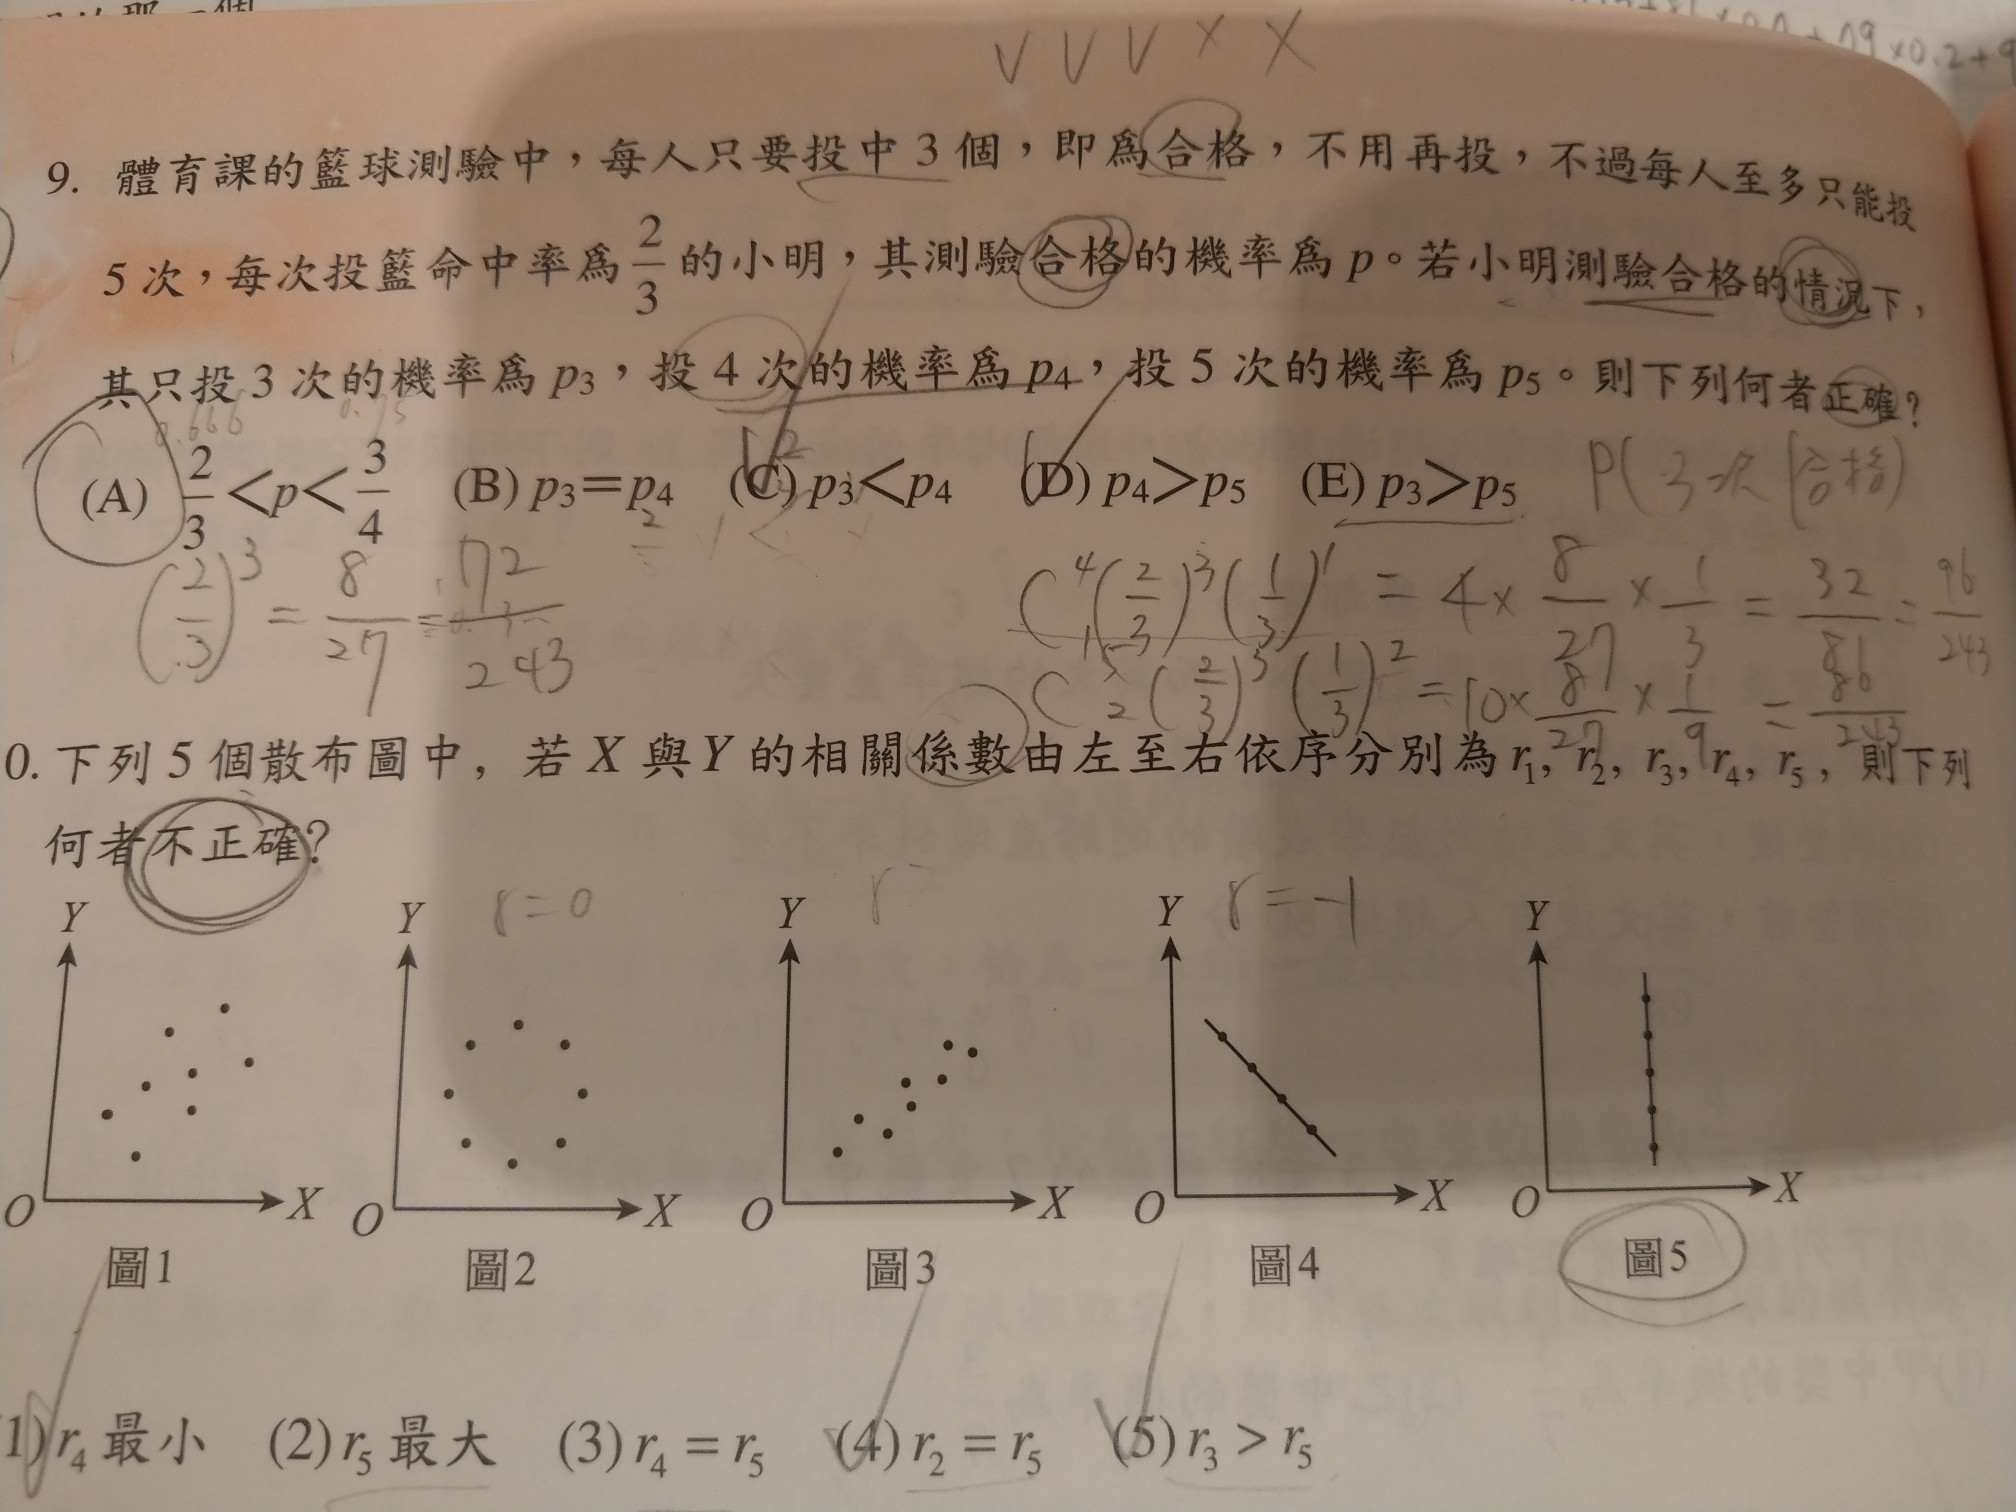 V V V × ×
×0.2+9
9. 體育課的籃球測驗中，每人只要投中 3 個，即為合格，不用再投，不過每人至多只能投
5 次，每次投籃命中率為 2/3 的小明，其測驗合格的機率為 p。若小明測驗合格的情況下，
其只投 3 次的機率為 p₃，投 4 次的機率為 p₄，投 5 次的機率為 p₅。則下列何者正確？
0.666 0.75
(A) 2/3 < p < 3/4 (B) p₃＝p₄ (C) p₃＜p₄ (D) p₄＞p₅ (E) p₃＞p₅ P( 3次 | 合格)
(2/3)³ = 8/27 = 72/243
C⁴₁(2/3)³(1/3)¹ = 4 × 8/27 × 1/3 = 32/81 = 96/243
C⁵₂(2/3)³(1/3)² = 10 × 8/27 × 1/9 = 80/243
0. 下列 5 個散布圖中，若 X 與 Y 的相關係數由左至右依序分別為 r₁, r₂, r₃, r₄, r₅，則下列
何者不正確？
r=0 r= r=-1
Y Y Y Y Y
O X O X O X O X O X
圖1 圖2 圖3 圖4 圖5
1) r₄ 最小 (2) r₅ 最大 (3) r₄ = r₅ (4) r₂ = r₅ (5) r₃ > r₅